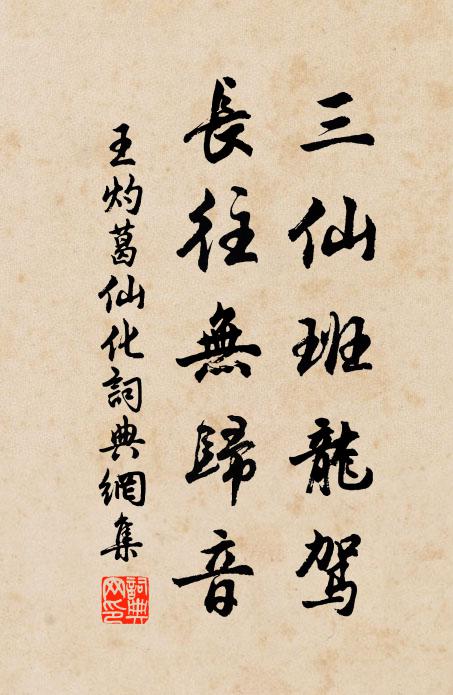 三仙班龍駕
長往無歸音
王灼葛仙化詞典網集
詞典網印